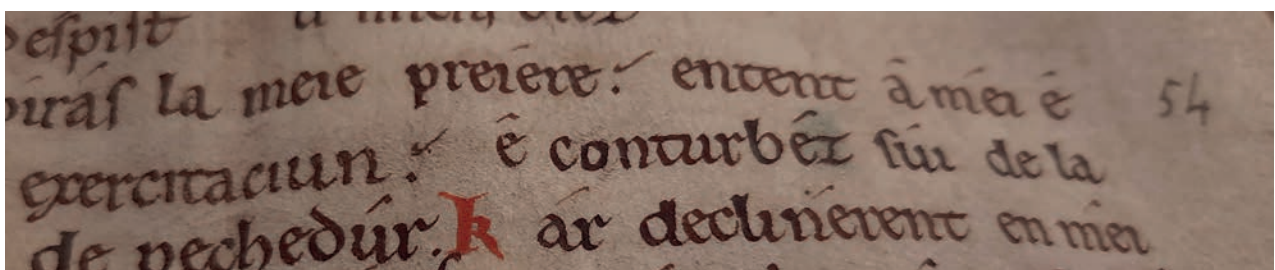 espist
irás la meie preiére: entent â méi é 54
exercitaciun: ê conturbêz súi de la
de pechedúr. Kár declinérent en méi